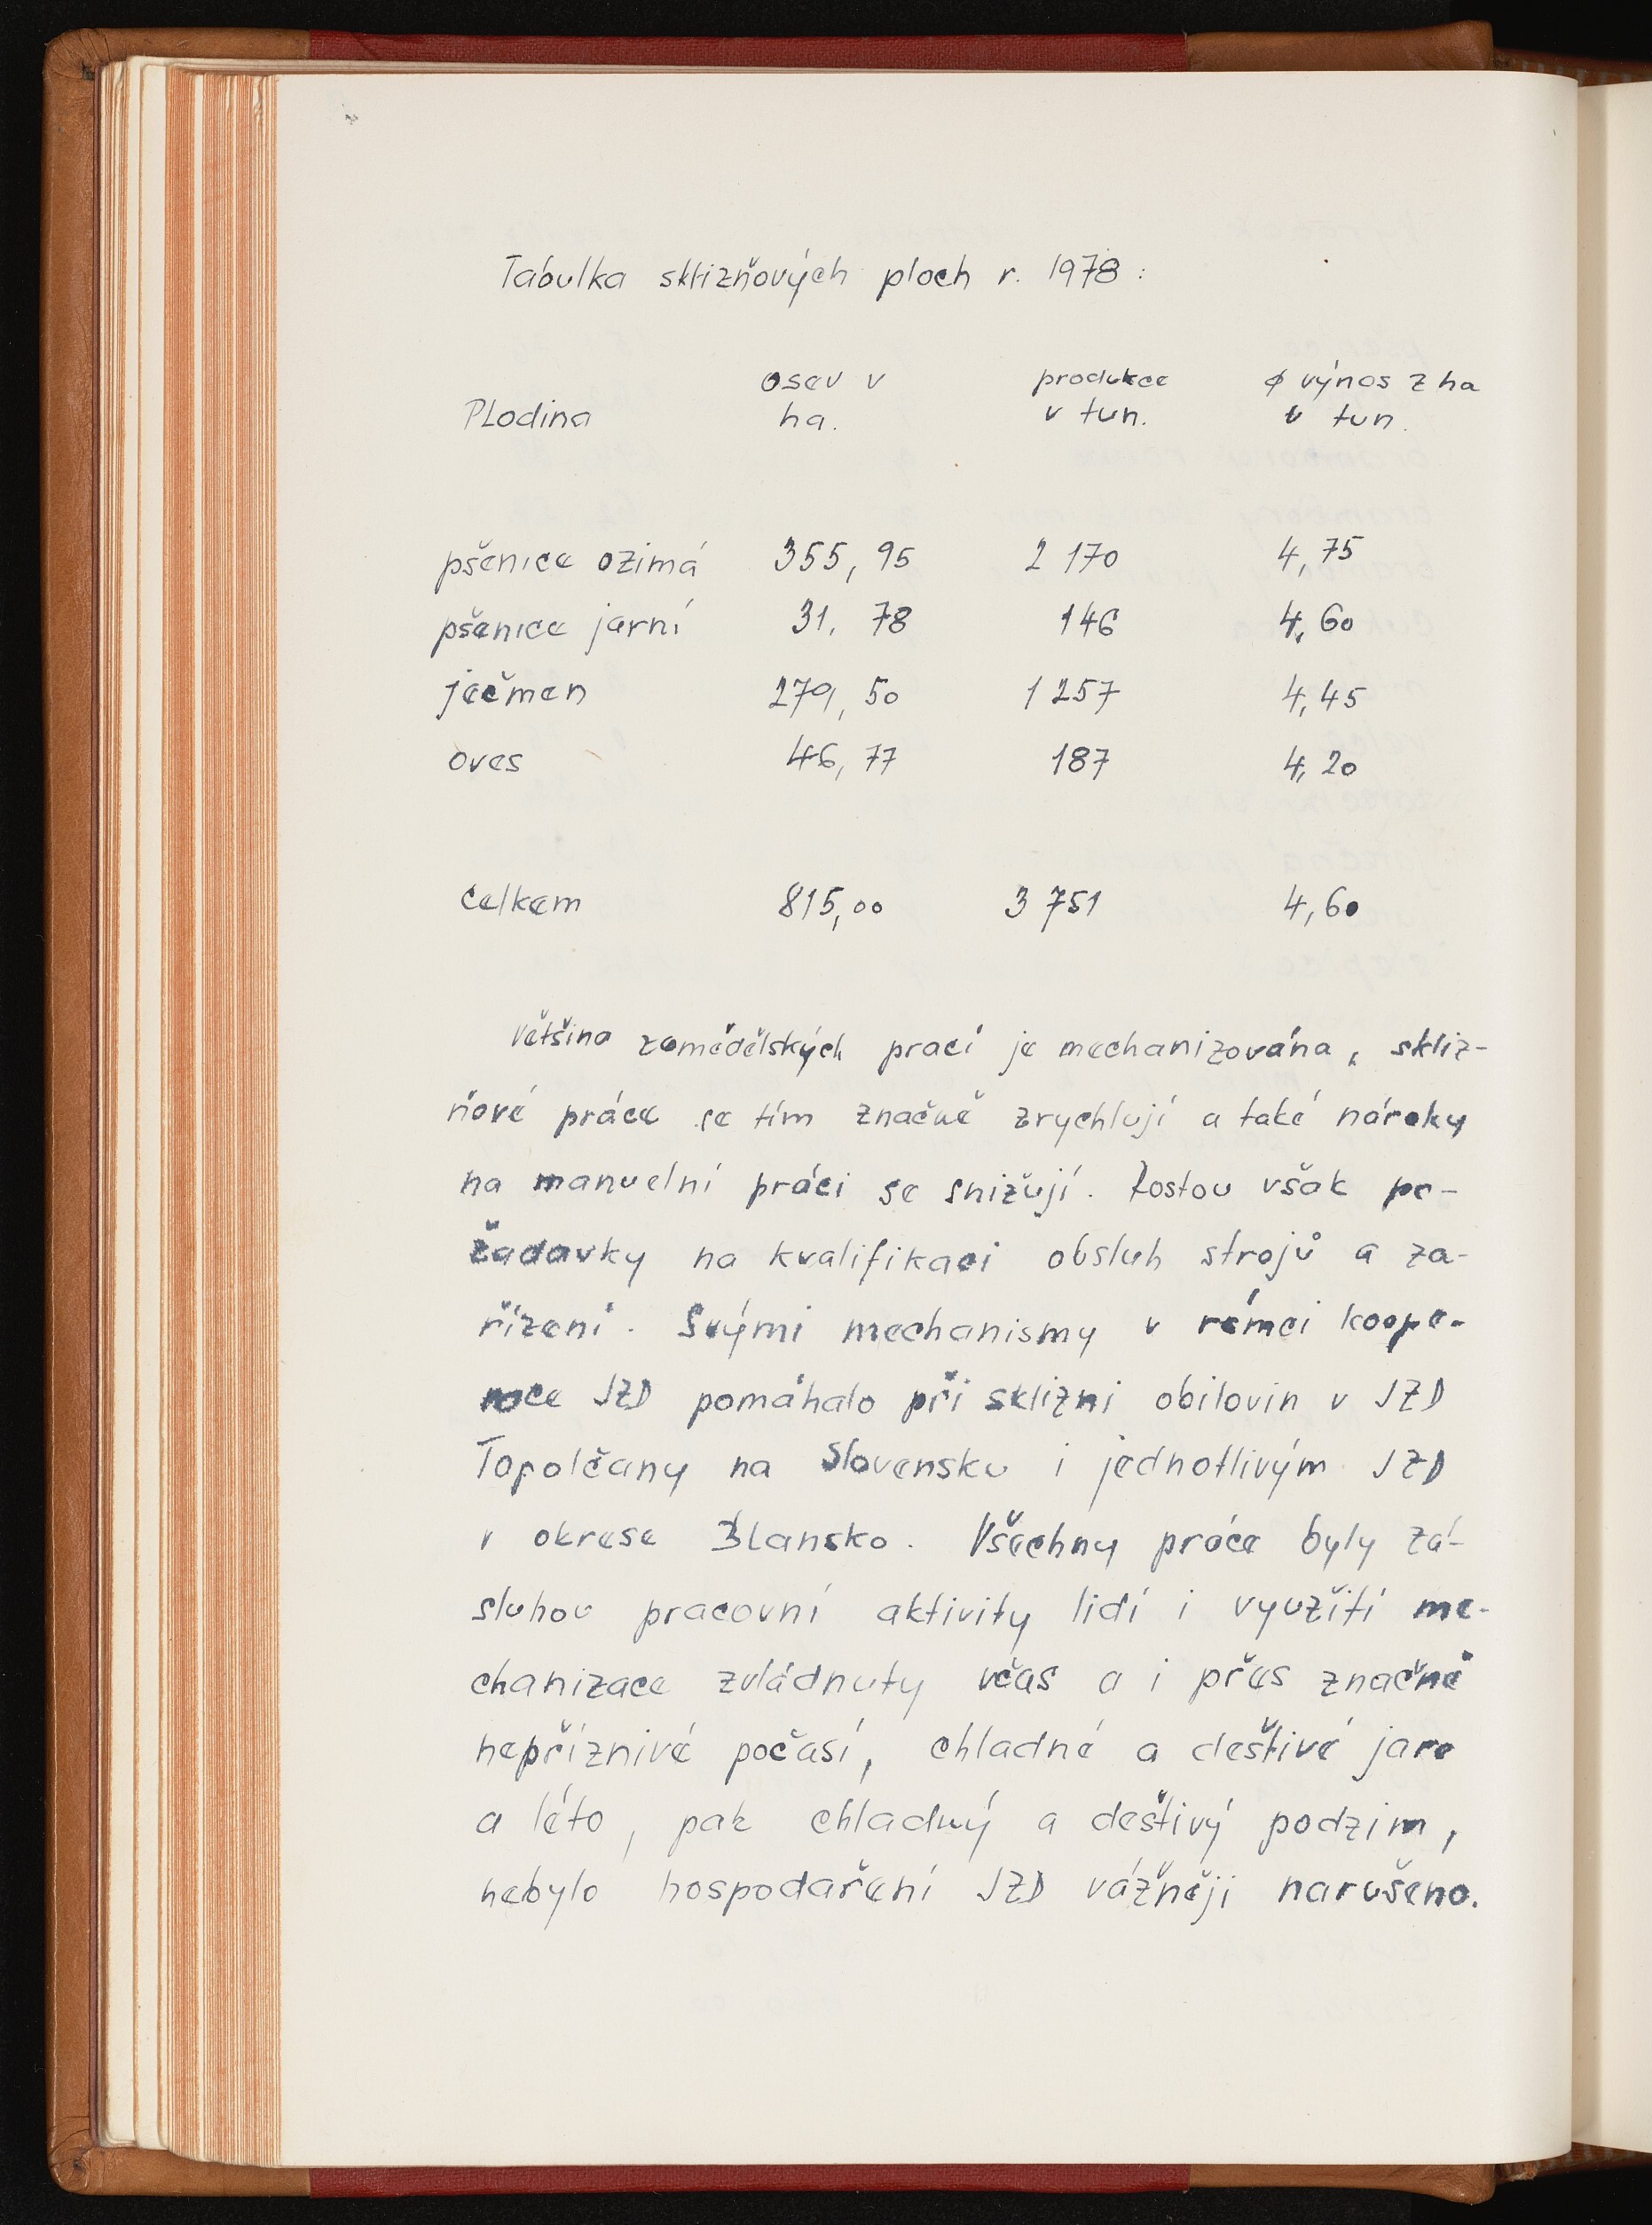 Tabulka sklizňových ploch r. 1978 :
Plodina osev v ha. produkce v tun. ø výnos z ha v tun.
pšenice ozimá 355,95 2 170 4,75
pšenice jarní 31,78 146 4,60
ječmen 279,50 1 257 4,45
oves 46,77 187 4,20
celkem 815,00 3 751 4,60
Většina zemědělských prací je mechanizována, skliz-
ňové práce se tím značně zrychlují a také nároky
na manuelní práci se snižují. Rostou však po-
žadavky na kvalifikaci obsluh strojů a za-
řízení. Svými mechanismy v rámci koope-
race JZD pomáhalo při sklizni obilovin v JZD
Topolčany na Slovensku i jednotlivým JZD
v okrese Blansko. Všechny práce byly zá-
sluhou pracovní aktivity lidí i využití me-
chanizace zvládnuty včas a i přes značně
nepříznivé počasí, chladné a deštivé jaro
a léto, pak chladný a deštivý podzim,
nebylo hospodaření JZD vážněji narušeno.